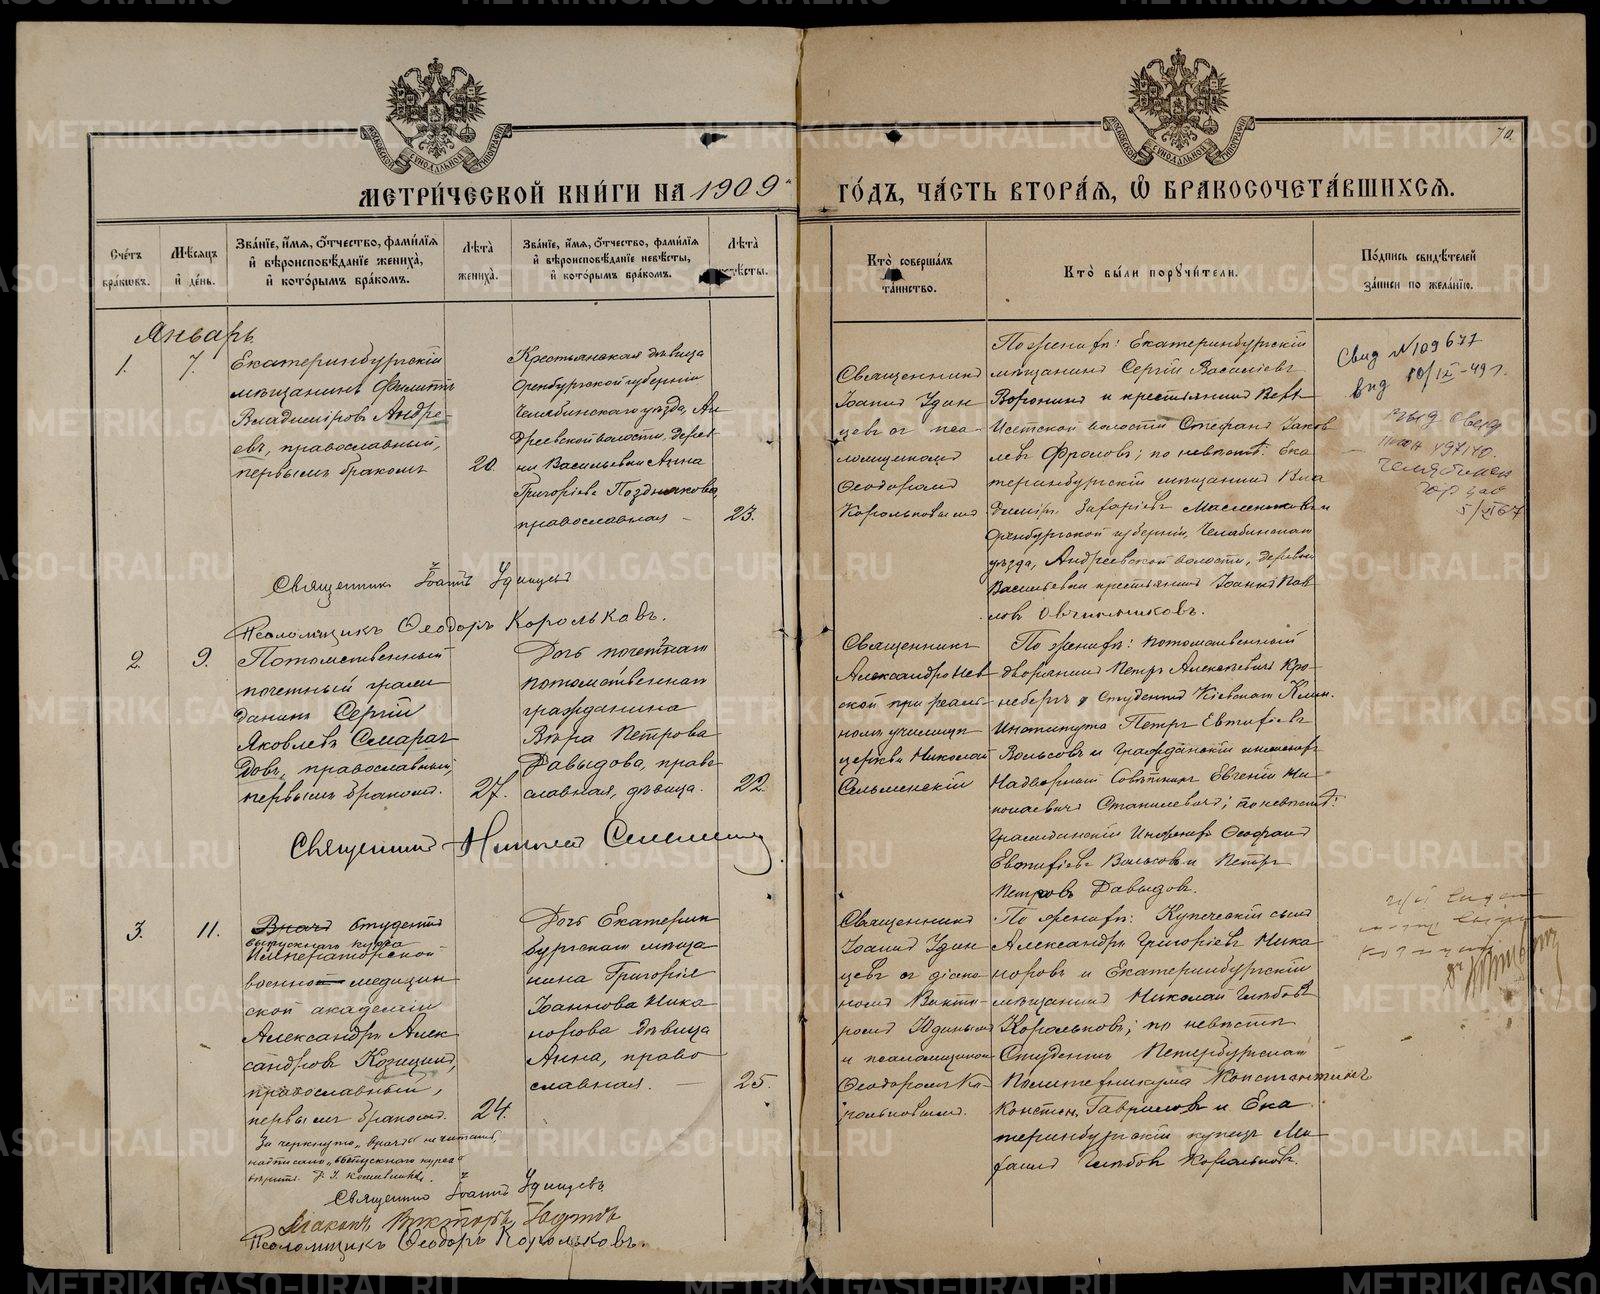 МЕТРИ́ЧЕСКОЙ КНИ́ГИ НА 1909
ГО́ДЪ, ЧА́СТЬ ВТОРА́Я, Ѽ БРАКОСОЧЕТА́ВШИХСЯ.
Сче́тъ бра́ковъ.
Мѣ́сяцъ и҆ де́нь.
Зва́нїе, и҆́мя, ѻ҆́тчество, фами́лїя
и҆ вѣроисповѣ́данїе жениха̀,
и҆ кото́рымъ бра́комъ.
Лѣ́та жениха̀.
Зва́нїе, и҆́мя, ѻ҆́тчество, фами́лїя
и҆ вѣроисповѣ́данїе невѣ́сты,
и҆ кото́рымъ бра́комъ.
Лѣ́та
Кто̀ соверша́лъ
та́инство.
Кто̀ бы́ли порꙋчи́тели.
По́дпись свидѣ́телей
за́писи по жела́нїю.
Январь
1.
7.
Екатеринбургскій
мѣщанинъ Филиппъ
Владиміровъ Андре-
евъ, православный,
первымъ бракомъ
20.
Крестьянская дѣвица
Оренбургской губерніи
Челябинскаго уѣзда, Ан
дреевской волости, дерев
ни Васильевки Анна
Григоріева Позднякова
православная –
23.
Священникъ
Іоаннъ Удин
цевъ съ пса
ломщикомъ
Ѳеодоромъ
Корольковымъ
По женихѣ: Екатеринбургскій
мѣщанинъ Сергій Васильевъ
Воронинъ и крестьянинъ Верх
Исетской волости Стефанъ Іаков
левъ Фроловъ; по невѣстѣ: Ека
теринбургскій мѣщанинъ Вла
диміръ Захаріевъ
Оренбургской губерніи, Челябинскаго
уѣзда, Андреевской волости, деревни
Васильевки крестьянинъ Іоаннъ Пав
ловъ Овчинниковъ.
Свид №109677
выд 10/IX-49 г.
497140.
5/XI 67
Священникъ Іоаннъ Удинцевъ
Псаломщикъ Ѳеодоръ Корольковъ.
2.
9.
Потомственный
почетный граж
данинъ Сергій
Яковлевъ Смараг
довъ, православный,
первымъ бракомъ.
27.
Дочь почетнаго
потомственнаго
гражданина
Вѣра Петрова
Давыдова, право
славная, дѣвица.
22.
Священникъ
Александро Нев
ской при реаль
номъ училищѣ
церкви Николай
Сельменскій
По женихѣ: потомственный
дворянинъ Петръ Алексѣевичъ Кро-
небергъ и студентъ Кіевскаго
Института Петръ Евтихіевъ
Вольсовъ и Гражданскій инженеръ
Надворный Совѣтникъ Евгеній Ни
колаевичъ Станилевичъ; по невѣстѣ:
Гражданскій Инженеръ Ѳеофанъ
Евтихіевъ Вольсовъ и Петръ
Петровъ Давыдовъ.
Священникъ Николай Сельменскій
3.
11.
Врачъ студентъ
выпускного курса
Императорской
военно медицин
ской академіи
Александръ Алек
сандровъ Козицинъ,
православный,
первымъ бракомъ.
24.
Зачеркнуто „врачъ" не читать,
надписано „выпускного курса"
вѣрить.
Дочь Екатерин
бургскаго мѣща
нина Григорія
Іоаннова Ника
норова дѣвица
Анна, право
славная. –
25.
Священникъ
Іоаннъ Удин
цевъ съ діако
номъ Викто-
ромъ Юдинымъ
и псаломщикомъ
Ѳеодоромъ Ко-
рольковымъ.
По женихѣ: Купеческій сынъ
Александръ Григоріевъ Ника
норовъ и Екатеринбургскій
мѣщанинъ Николай Глѣбовъ
Корольковъ; по невѣстѣ
Студентъ Петербургскаго
Политехникума Константинъ
Констан. Гавриловъ и Ека
теринбургскій купецъ Ми
хаилъ Глѣбовъ Корольковъ.
Священникъ Іоаннъ Удинцевъ
Діаконъ Викторъ Юдинъ
Псаломщикъ Ѳеодоръ Корольковъ.
METRIKI.GASO-URAL.RU